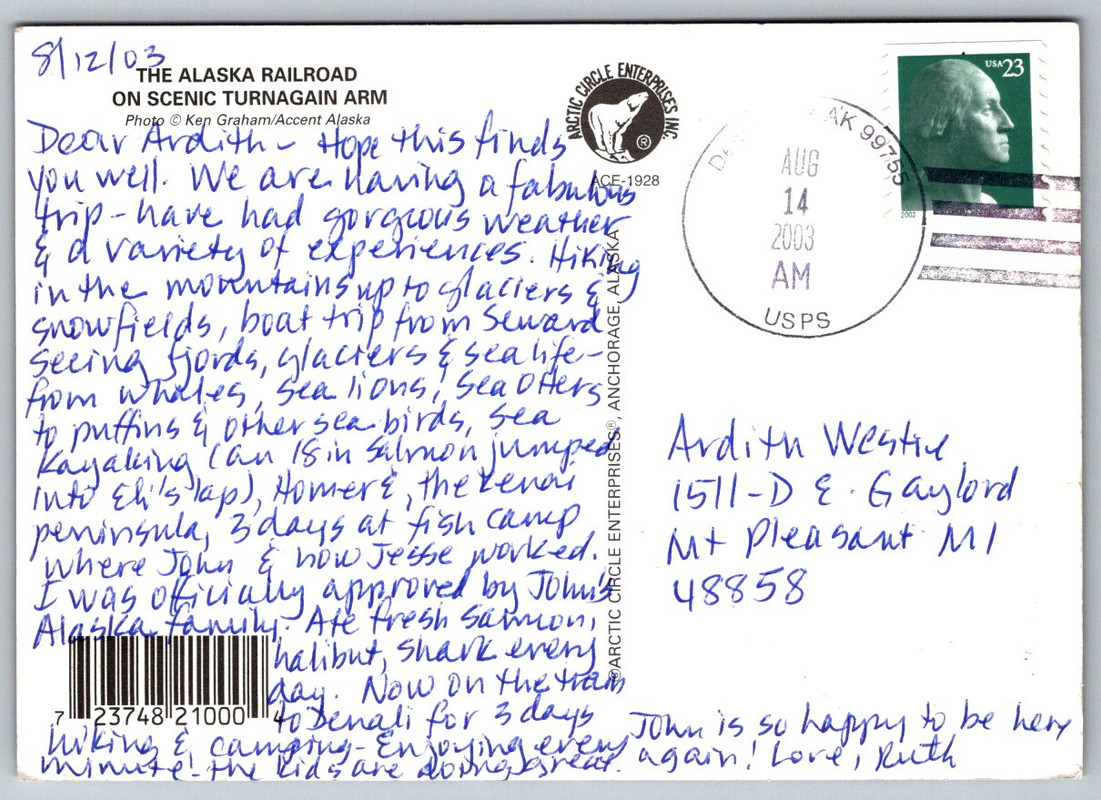 8/12/03
THE ALASKA RAILROAD
ON SCENIC TURNAGAIN ARM
Photo © Ken Graham/Accent Alaska
Dear Ardith - Hope this finds
you well. We are having a fabulous
trip - have had gorgeous weather
& a variety of experiences. Hiking
in the mountains up to glaciers &
snowfields, boat trip from Seward
seeing fjords, glaciers & sea life -
from whales, sea lions, sea otters
to puffins & other sea birds, sea
kayaking (an 18 in salmon jumped
into Eli's lap), Homer &, the Kenai
peninsula, 3 days at fish camp
where John & now Jesse worked.
I was officially approved by John's
Alaska family. Ate fresh salmon,
halibut, shark every
day. Now on the train
to Denali for 3 days
hiking & camping - Enjoying every
minute - the kids are doing great.
John is so happy to be here
again! Love, Ruth
7 23748 21000 4
ARCTIC CIRCLE ENTERPRISES INC.
®
ACE-1928
©ARCTIC CIRCLE ENTERPRISES®, ANCHORAGE, ALASKA
AK 99755
AUG
14
2003
AM
USPS
USA 23
2002
Ardith Westie
1511-D E. Gaylord
Mt Pleasant MI
48858